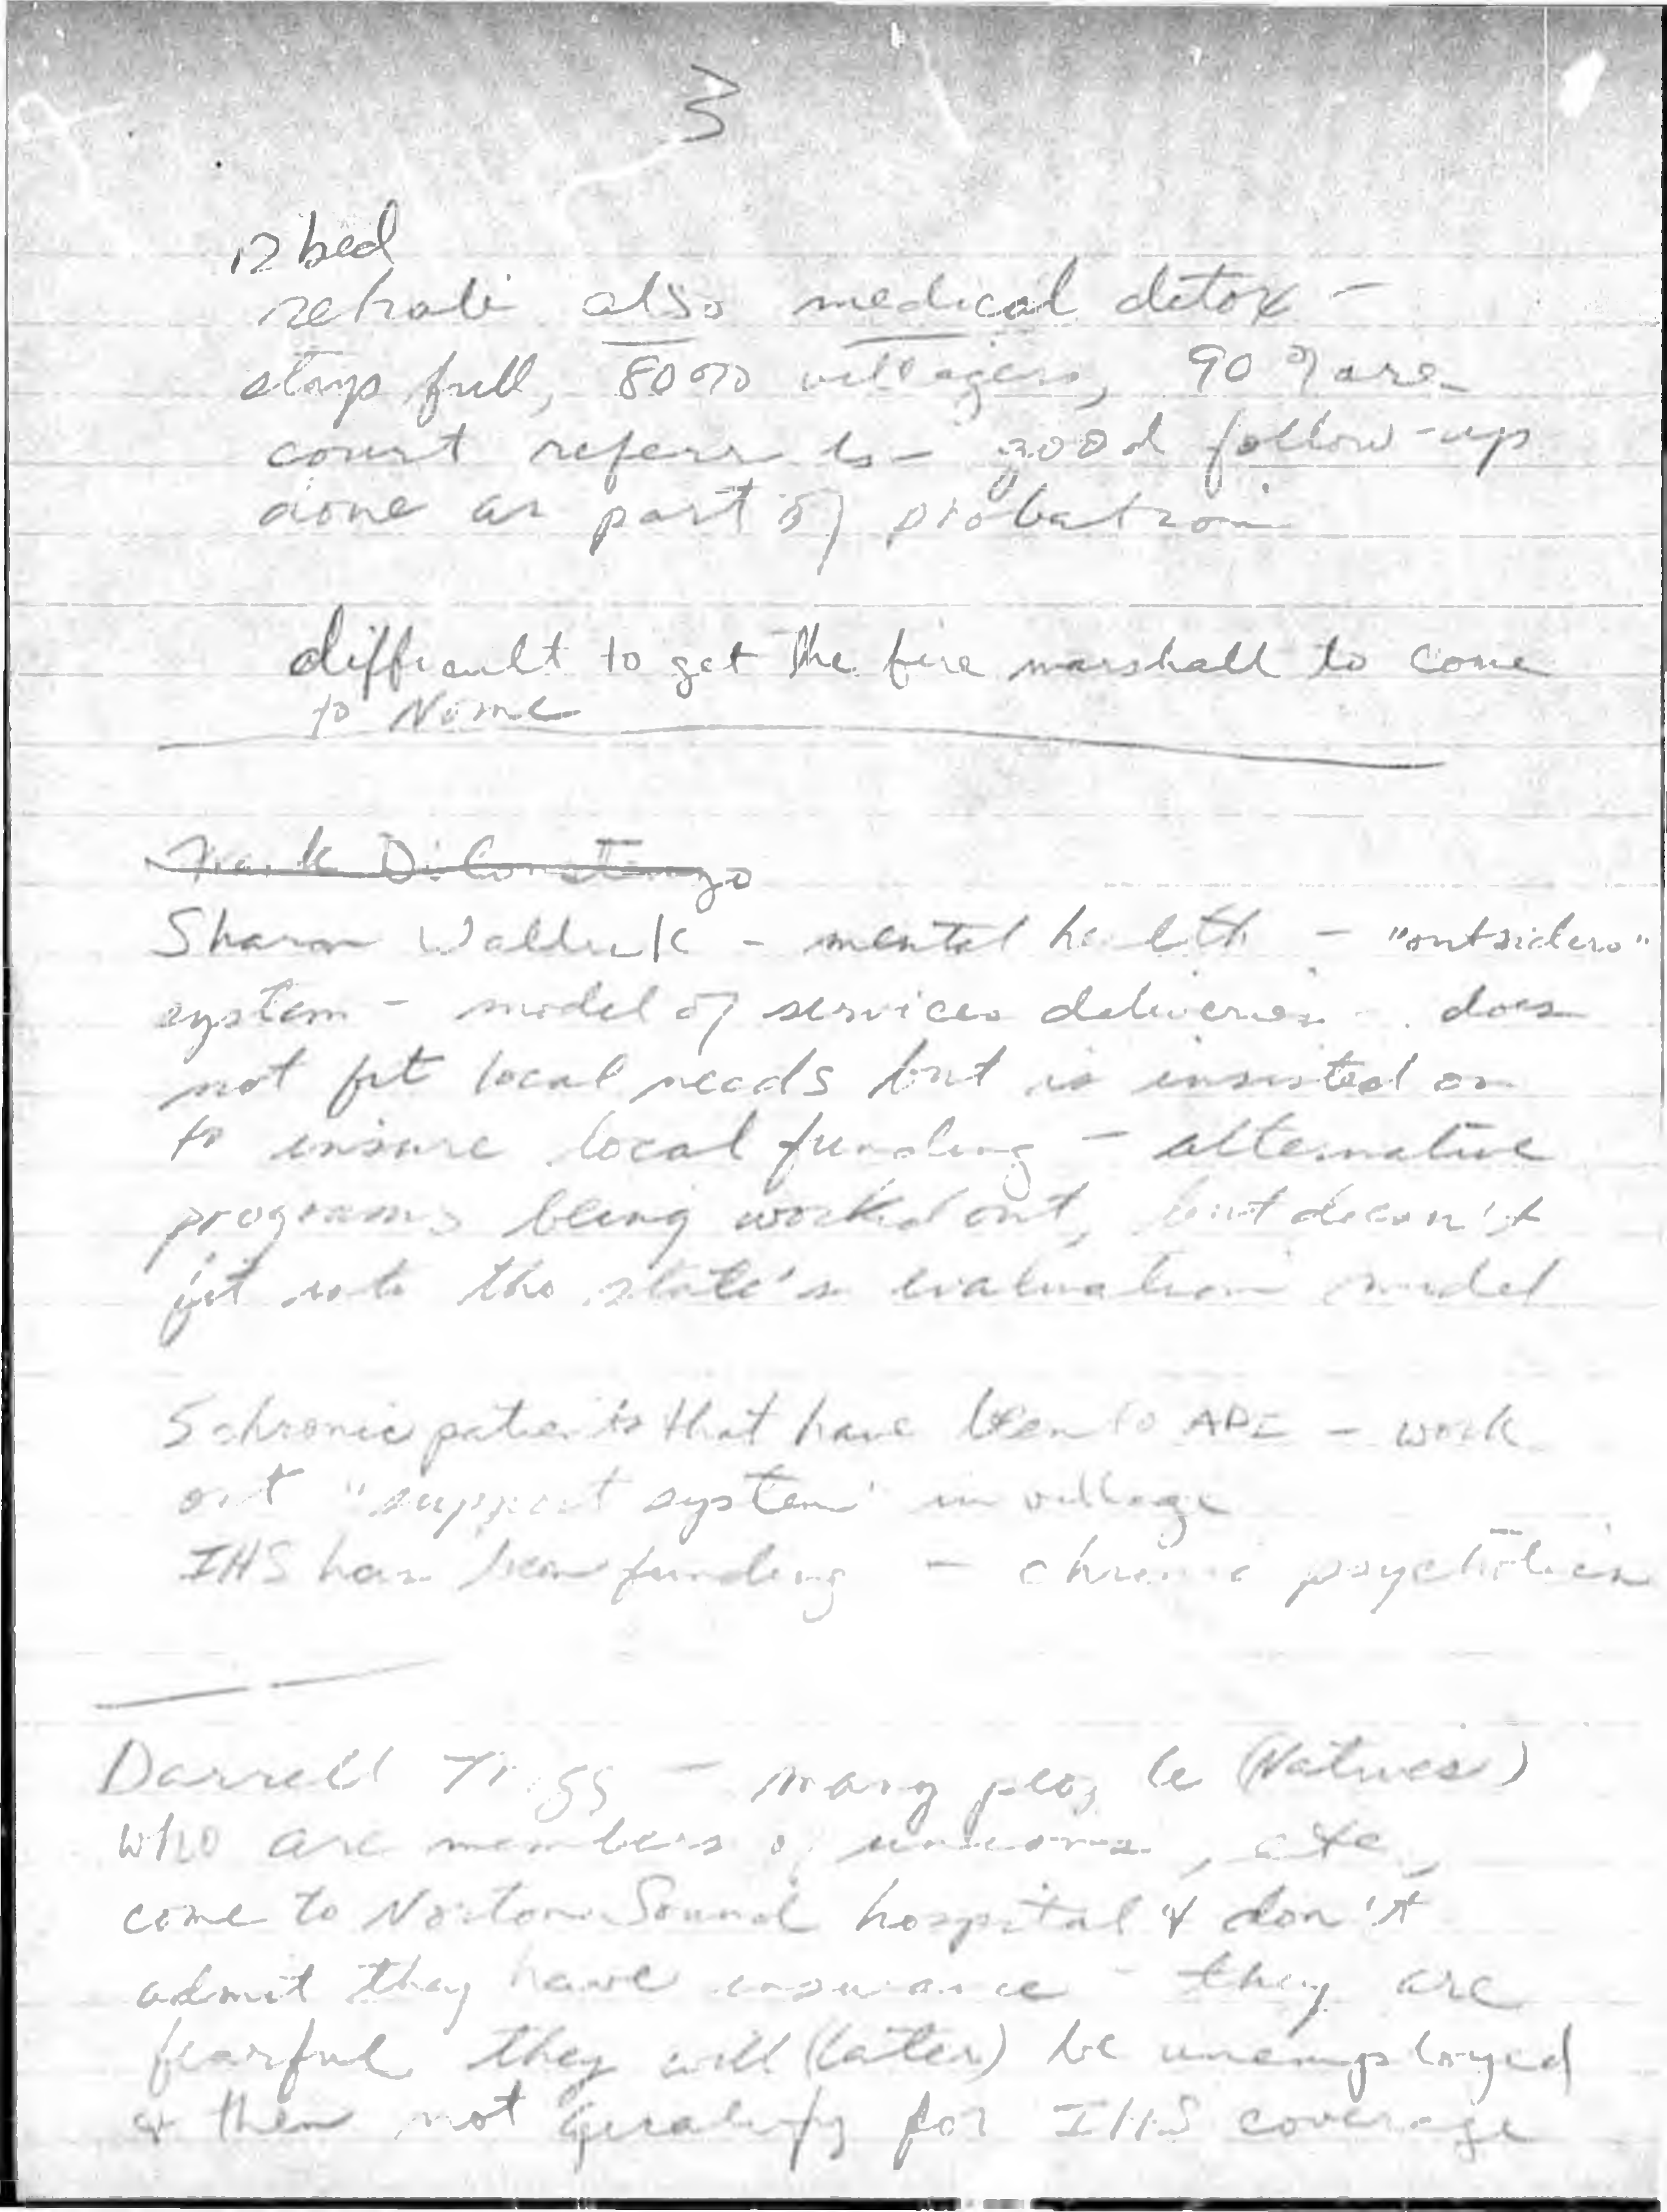 3
12 bed
rehab also medical detox -
stays full, 80% villagers, 90% are
court referrals - good follow-up
done as part of probation
difficult to get the fire marshall to come
to Nome
Sharon - mental health - "outsiders"
system - model of services deliveries - does
not fit local needs but is insisted on
to insure local funding - alternative
programs being worked out, but doesn't
fit into the state's evaluation model
5 chronic patients that have been to API - work
out "support system" in village
IHS has been funding - chronic psychotics
Darrell Trigg - many people (Natives)
who are members of unions, etc,
come to Norton Sound hospital & don't
admit they have insurance - they are
fearful they will (later) be unemployed
& then not qualify for IHS coverage